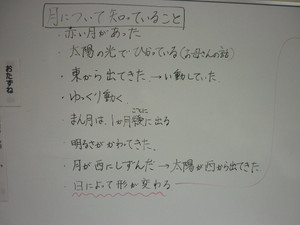 月について知っていること
・赤い月があった
・太陽の光でひかっている(お母さんの話)
・東から出てきた→い動していた
・ゆっくり動く
ごとに
・まん月は、1か月後に出る
明るさがかわってきた、
・月が西にしずんだ→太陽が西から出てきた
・日によって形が変わる
おたずね